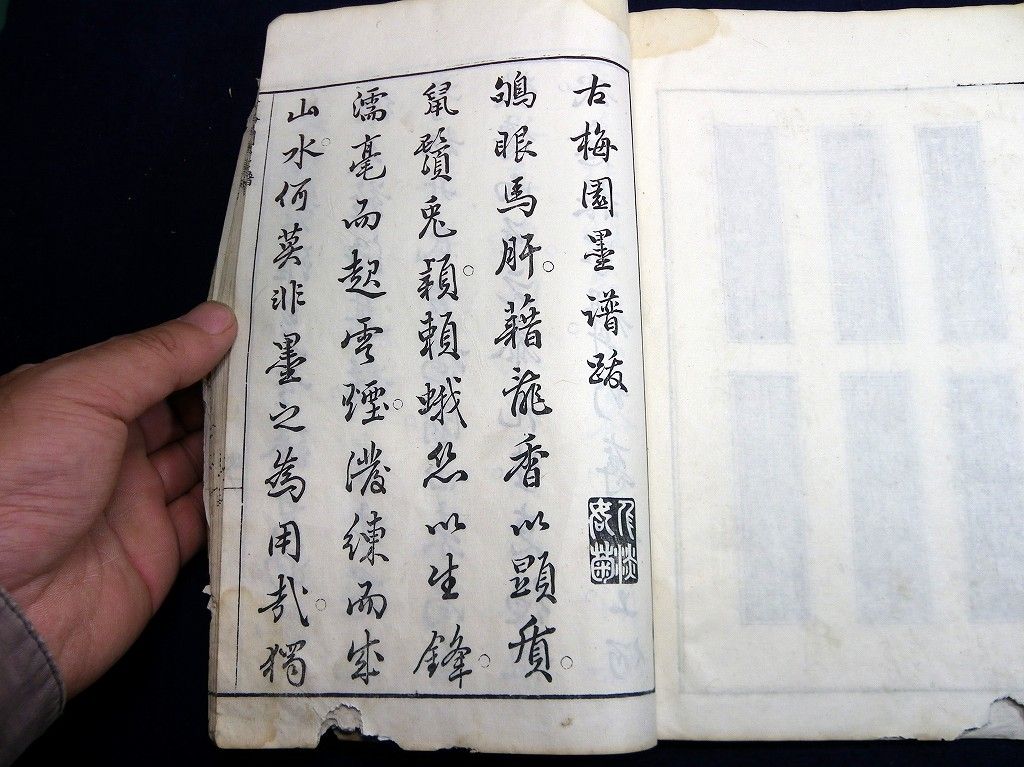 古梅園墨譜跋
鴝眼馬肝。藉龍香以顕質。
鼠鬚兎穎。頼蛾以生鋒。
濡毫而起雲煙。潑練而成
山水。何莫非墨之為用哉。獨